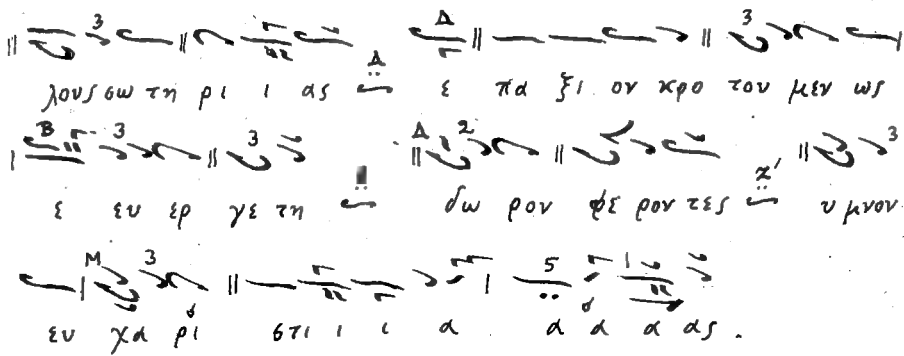 λους σω τη ρι ι ας ε πα ξι ον κρο του μεν ως
ε ευ ερ γε τη δω ρον φε ρον τες υ μνον
ευ χα ρι στι ι ι α α α α ας .